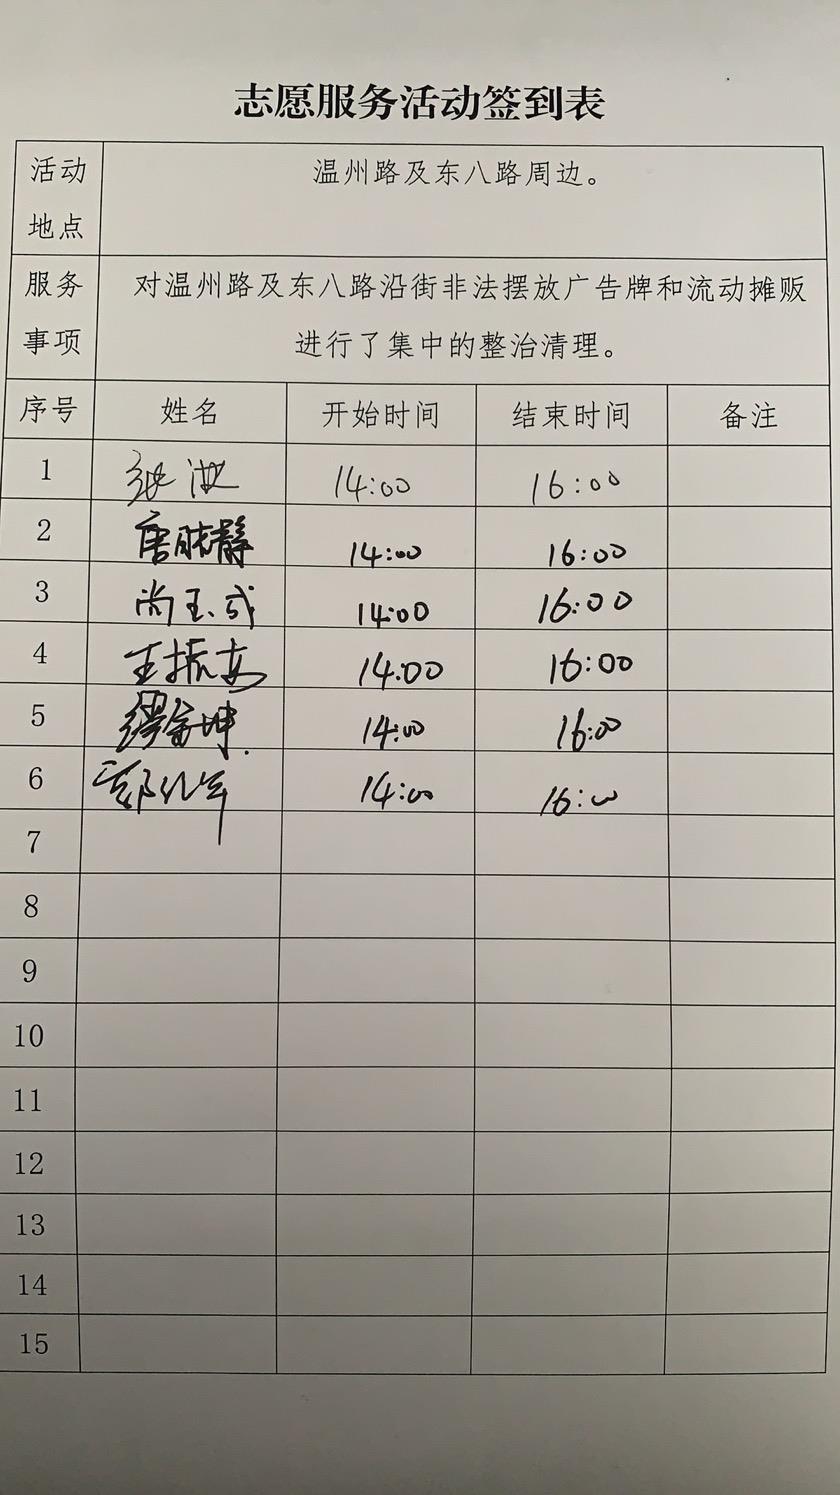 志愿服务活动签到表
活动地点 温州路及东八路周边。
服务事项 对温州路及东八路沿街非法摆放广告牌和流动摊贩
进行了集中的整治清理。
序号 姓名 开始时间 结束时间 备注
1 14:00 16:00
2 唐晓静 14:00 16:00
3 尚玉成 14:00 16:00
4 王振 14:00 16:00
5 缪金坤 14:00 16:00
6 14:00 16:00
7
8
9
10
11
12
13
14
15